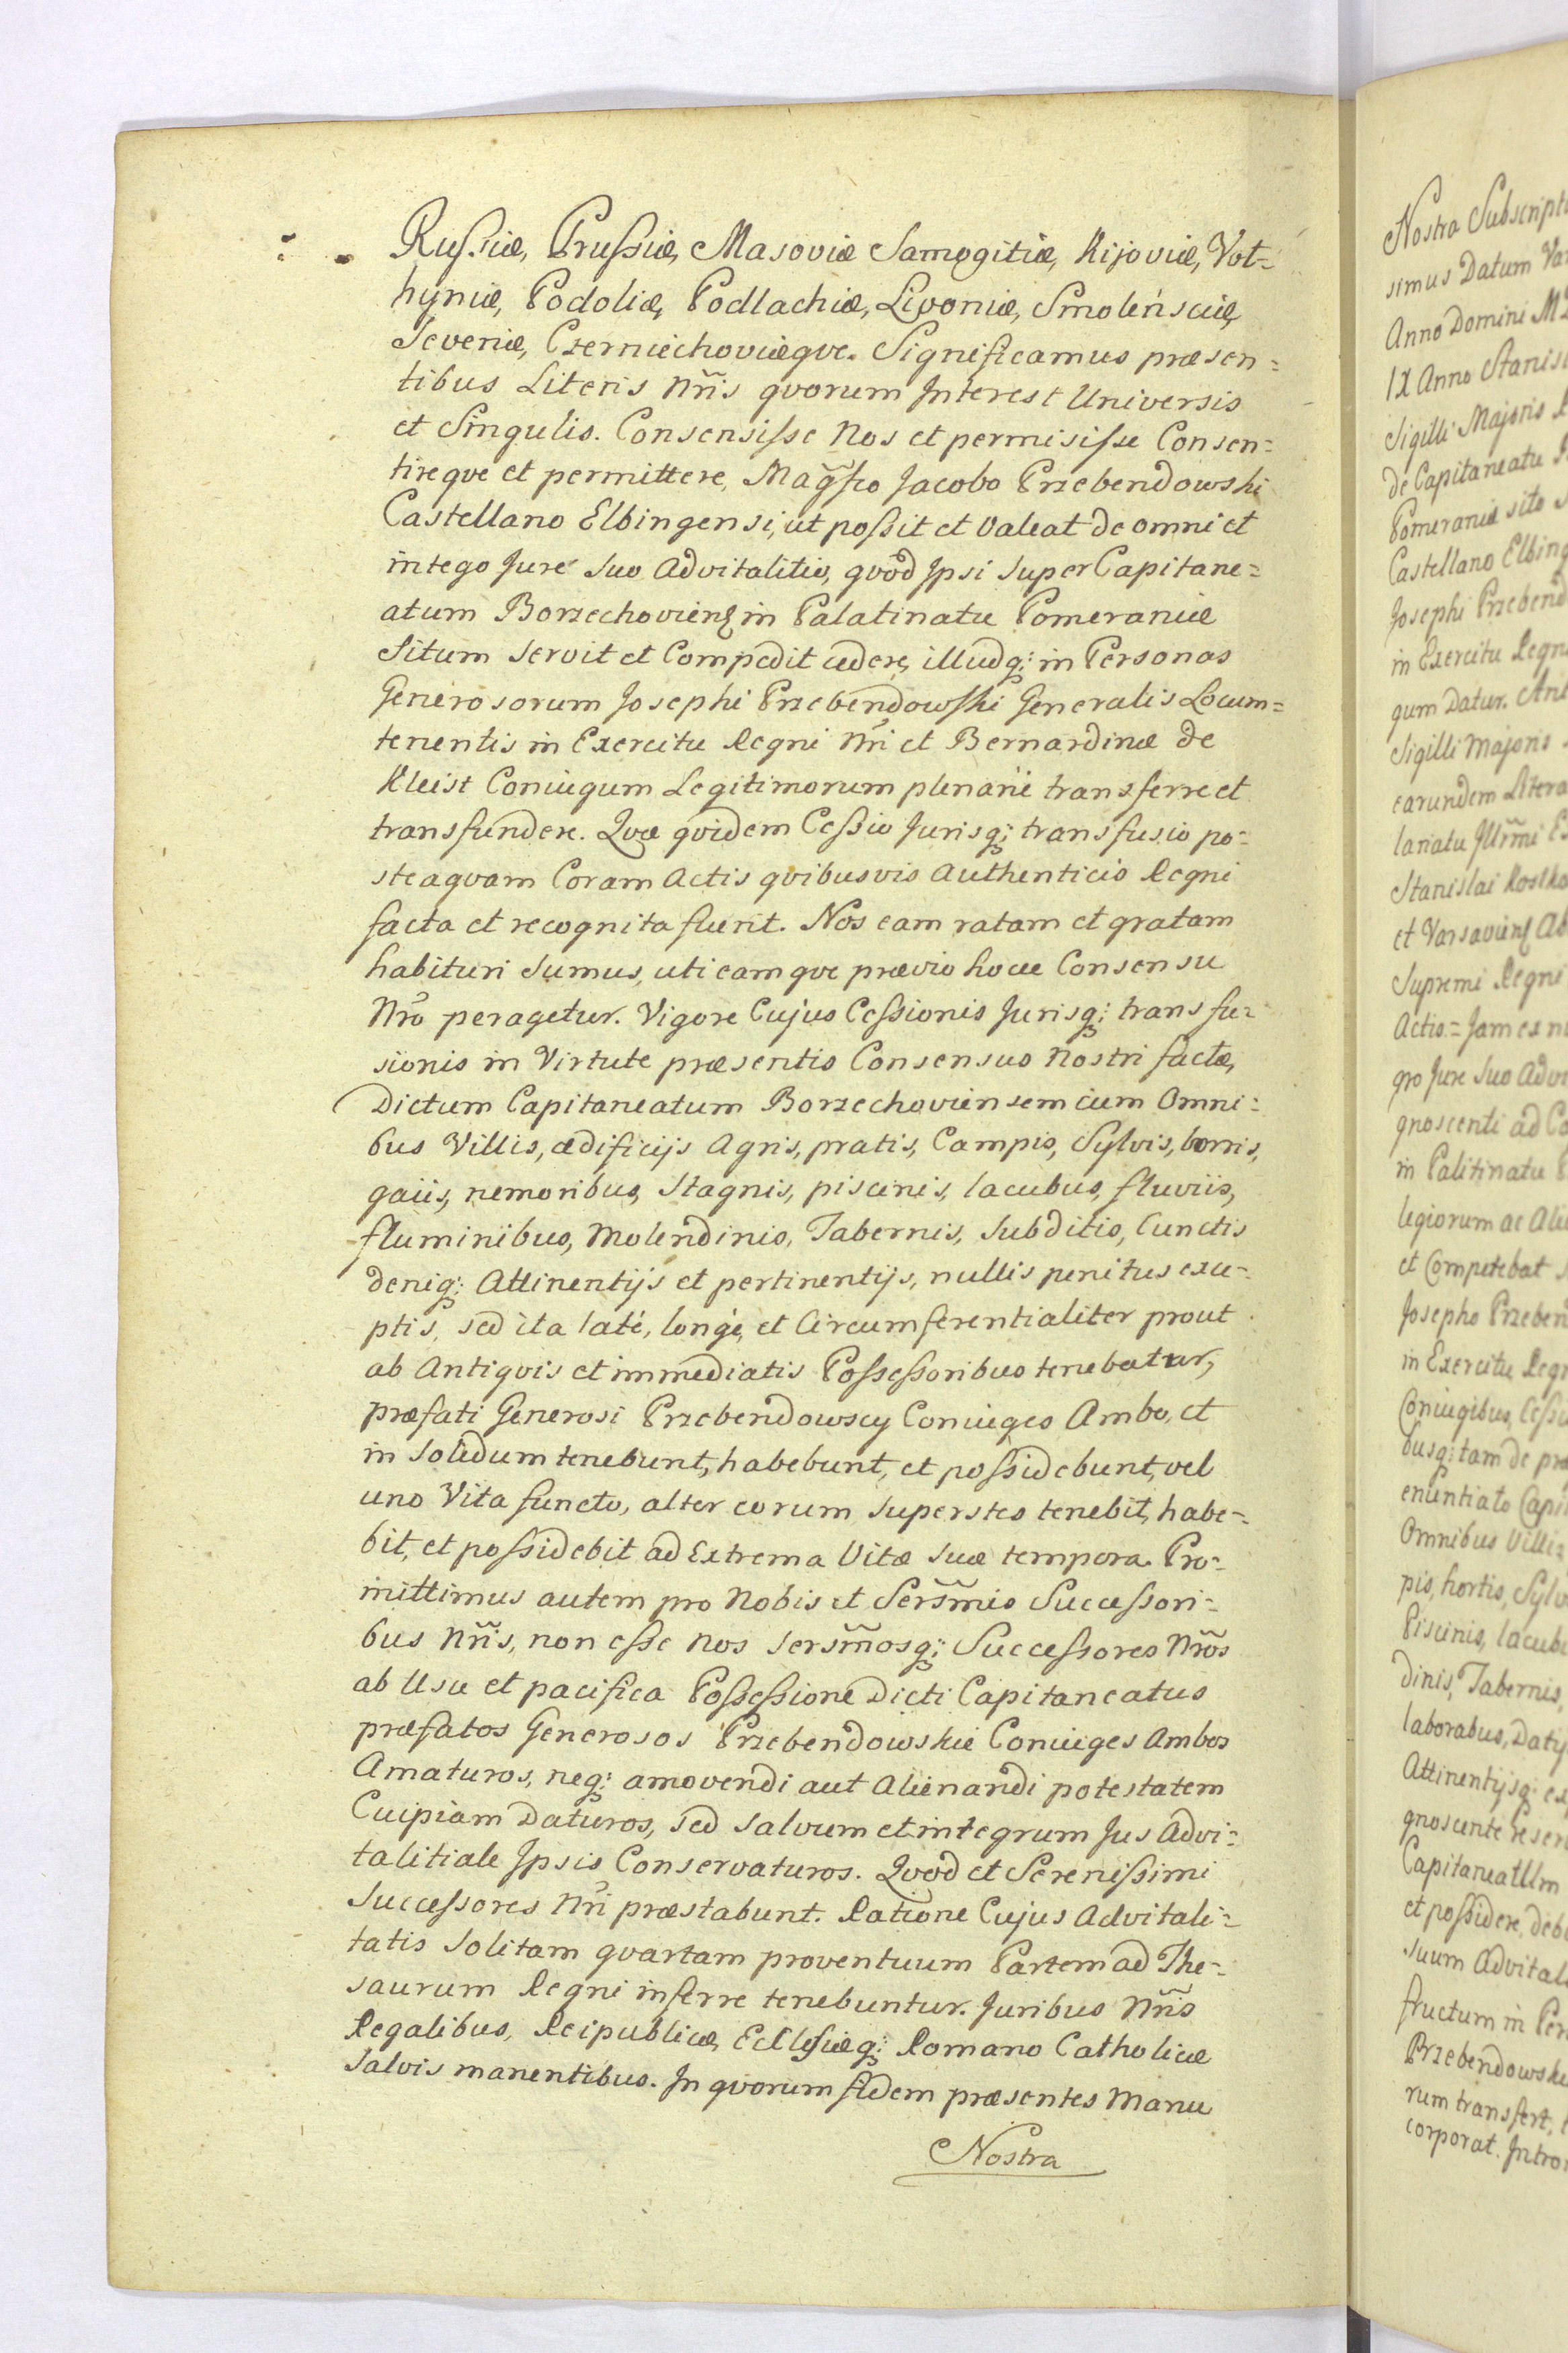 Rußiæ, Prußiæ, Masoviæ Samogitiæ, Kijoviæ, Vol=
hyniæ, Podoliæ, Podlachiæ, Livoniæ, Smolénsciæ,
Severiæ, Czerniechoviæqve. Significamus præsen=
tibus Literis Nr̃is qvorum Interest Universis
et Singulis. Consensiße Nos et permisiße Consen=
tireqve et permittere, Mag̃fco Jacobo Przebendowski
Castellano Elbingensi, ut poßit et valeat de omni et
intego Jure suo Advitalitio, qvod Ipsi super Capitane=
atum Borzechovienȩ in Palatinatu Pomeraniæ
Situm servit et Compedit cedere, illudq; in Personas
Generosorum Josephi Przebendowski Generalis Locum=
tenentis in Exercitu Regni Nr̃i et Bernardinæ de
Kleist Coniugum Legitimorum plenarie transferre et
transfundere. Qvæ qvidem Ceßio Jurisq; transfusio po=
steaqvam Coram Actis qvibusvis Authenticis Regni
facta et recognita fuerit. Nos eam ratam et gratam
habituri sumus, uti eamqve prævio hocce Consensu
Nr̃o peragetur. Vigore Cujus Ceßionis Jurisq; transfu=
sionis in Virtute præsentis Consensus Nostri factæ,
Dictum Capitaneatum Borzechoviensem cum Omni=
bus Villis, ædificijs Agris, pratis, Campis, Sylvis, borris,
gaiis, nemoribus, stagnis, piscinis, lacubus, fluviis,
fluminibus, Molendinis, Tabernis, subditis, Cunctis
deniq; Attinentijs et pertinentijs, nullis penitus exce=
ptis, sed ita laté, longé, et Circumferentialiter prout
ab Antiqvis et immediatis Poßeßoribus tenebatur,
præfati Generosi Przebendowscy Coniuges Ambo, et
in solidum tenebunt, habebunt, et poßidebunt, vel
uno Vita functo, alter eorum superstes tenebit, habe=
bit, et poßidebit ad Extrema Vitæ suæ tempora. Pro=
mittimus autem pro Nobis et Sers̃mis Succeßori=
bus Nr̃is, non eße Nos sers̃mosq; Succeßores Nr̃os
ab Usu et pacifica Poßeßione Dicti Capitaneatus
præfatos Generosos Przebendowskie Coniuges Ambos
Amaturos, neq; amovendi aut Alienandi potestatem
Cuipiam Daturos, sed salvum et integrum Jus Advi=
talitiale Ipsis Conservaturos. Qvod et Serenißimi
Succeßores Nr̃i præstabunt. Ratione Cujus Advitali=
tatis solitam qvartam proventuum Partem ad The=
saurum Regni inferre tenebuntur. Juribus Nr̃is
Regalibus, Reipublicæ, Ecclesiæq; Romano Catholicæ
salvis manentibus. In qvorum fidem præsentes Manu
Nostra
Nostra Subscript
simus Datum Va
Anno Domini M
IX Anno Stanis
Sigilli Majoris R
de Capitaneatu
Pomeraniæ sito
Castellano Elbing
Josephi Przebend
in Exercitu Regn
qum Datur. Ant
Sigilli Majoris
earundem Litera
lariatu Illr̃mi
Stanislai Kostka
et Varsavienȩ Ab
Supremi Regni
Actis = Jam ex
gro Jure suo Advi
gnoscenti ad Ca
in Palitinatu P
legiorum ac Ali
et Competebat
Josepho Przeben
in Exercitu Reg
Coniugibus, Ceßi
busq; tam de pr
enuntiato Capi
Omnibus Villi=
pis, hortis, Sylv
Piscinis, lacub
dinis, Tabernis,
laborabus, Daty
Attinentijsq; ex
gnoscente reser
Capitaneatum
et poßidere, deb
suum Advital
fructum in Per
Przebendowski
rum transfert,
corporat. Intro